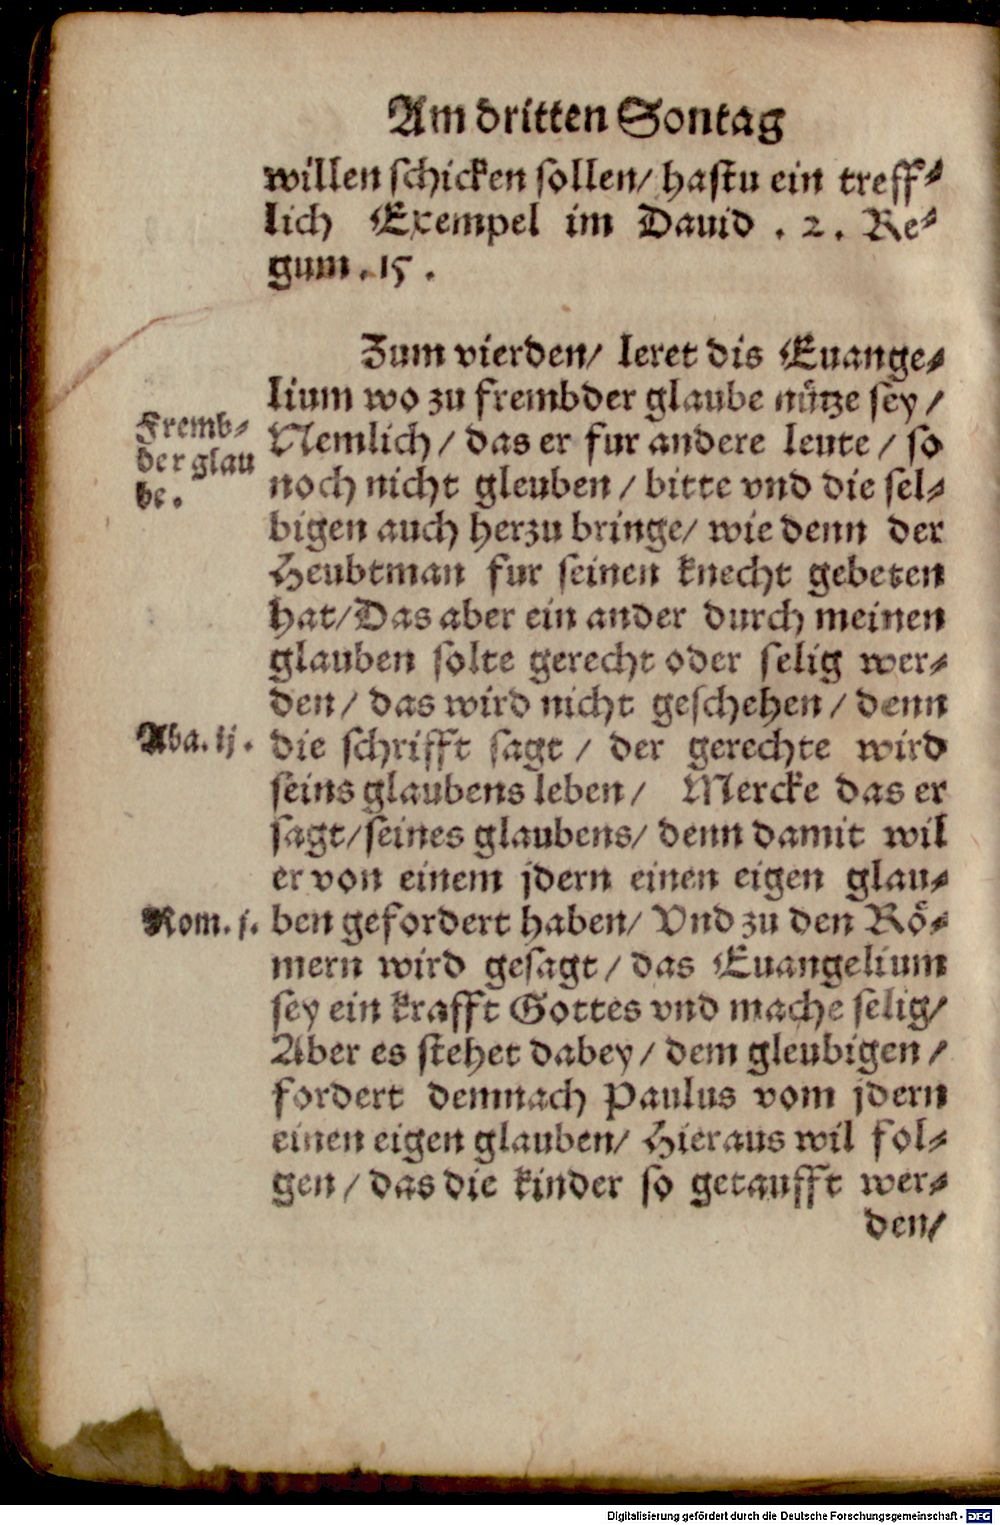 Am dritten Sontag
willen schicken sollen/ hastu ein treff⸗
lich Exempel im Dauid . 2. Re⸗
gum. 15.
Zum vierden/ leret dis Euange⸗
lium wo zu frembder glaube nütze sey/
Fremb⸗
der glau
be.
Nemlich/ das er fur andere leute/ so
noch nicht gleuben/ bitte vnd die sel⸗
bigen auch herzu bringe/ wie denn der
Heubtman fur seinen knecht gebeten
hat/ Das aber ein ander durch meinen
glauben solte gerecht oder selig wer⸗
den/ das wird nicht geschehen/ denn
Aba. ij.
die schrifft sagt/ der gerechte wird
seins glaubens leben/ Mercke das er
sagt/ seines glaubens/ denn damit wil
er von einem jdern einen eigen glau⸗
Rom. j.
ben gefordert haben/ Vnd zu den Rö⸗
mern wird gesagt/ das Euangelium
sey ein krafft Gottes vnd mache selig/
Aber es stehet dabey/ dem gleubigen/
fordert demnach Paulus vom jdern
einen eigen glauben/ Hieraus wil fol⸗
gen/ das die kinder so getaufft wer⸗
den/
Digitalisierung gefördert durch die Deutsche Forschungsgemeinschaft - DFG